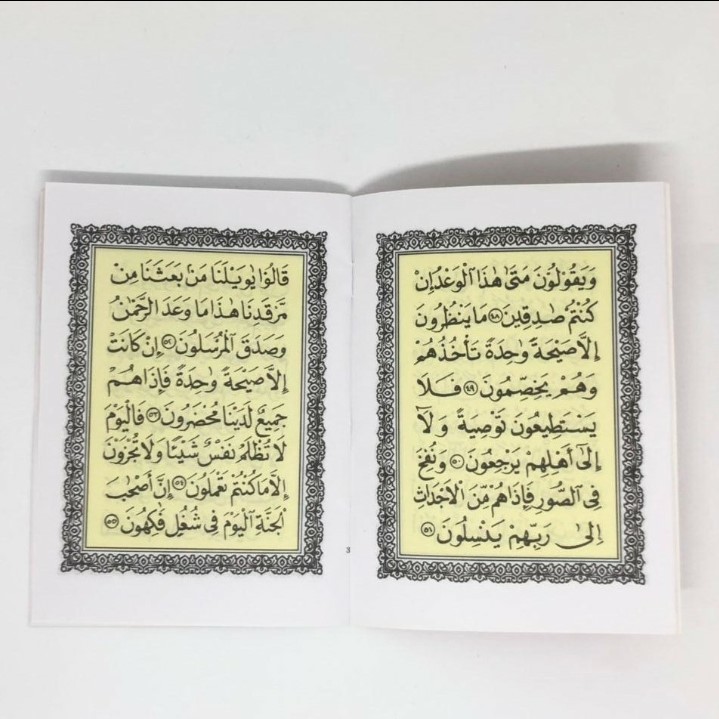 وَيَقُوْلُوْنَ مَتٰى هٰذَا الْوَعْدُ اِنْ
كُنْتُمْ صٰدِقِيْنَ ﴿٤٨﴾ مَا يَنْظُرُوْنَ
اِلَّا صَيْحَةً وَّاحِدَةً تَأْخُذُهُمْ
وَهُمْ يَخِصِّمُوْنَ ﴿٤٩﴾ فَلَا
يَسْتَطِيْعُوْنَ تَوْصِيَةً وَّلَآ
اِلٰٓى اَهْلِهِمْ يَرْجِعُوْنَ ﴿٥٠﴾ وَنُفِخَ
فِى الصُّوْرِ فَاِذَا هُمْ مِّنَ الْاَجْدَاثِ
اِلٰى رَبِّهِمْ يَنْسِلُوْنَ ﴿٥١﴾
قَالُوْا يٰوَيْلَنَا مَنْۢ بَعَثَنَا مِنْ
مَّرْقَدِنَا هٰذَا مَا وَعَدَ الرَّحْمٰنُ
وَصَدَقَ الْمُرْسَلُوْنَ ﴿٥٢﴾ اِنْ كَانَتْ
اِلَّا صَيْحَةً وَّاحِدَةً فَاِذَا هُمْ
جَمِيْعٌ لَّدَيْنَا مُحْضَرُوْنَ ﴿٥٣﴾ فَالْيَوْمَ
لَا تُظْلَمُ نَفْسٌ شَيْـًٔا وَّلَا تُجْزَوْنَ
اِلَّا مَا كُنْتُمْ تَعْمَلُوْنَ ﴿٥٤﴾ اِنَّ اَصْحٰبَ
الْجَنَّةِ الْيَوْمَ فِيْ شُغُلٍ فٰكِهُوْنَ ﴿٥٥﴾
3